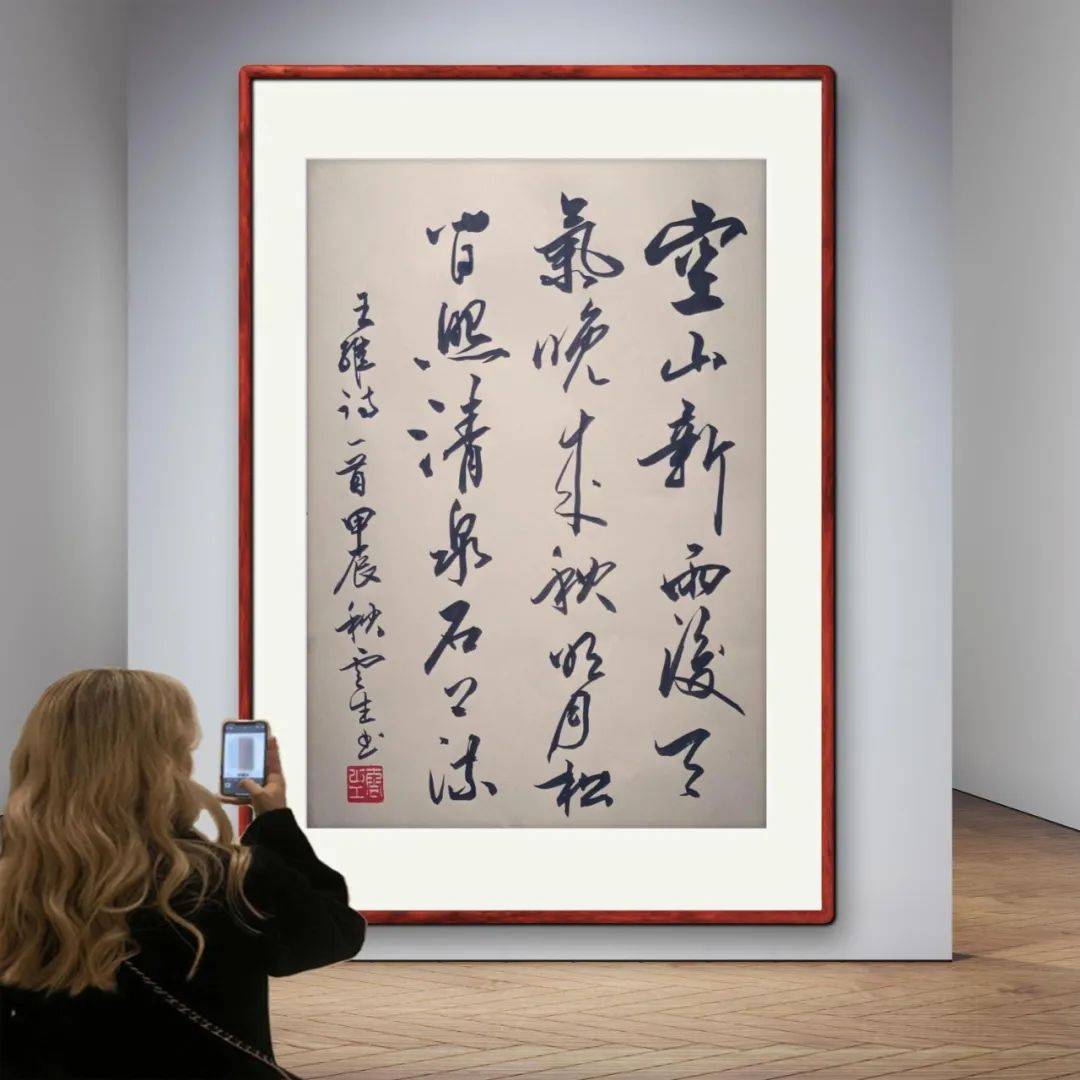 空山新雨後天
氣晚来秋明月松
間照清泉石上流
王維诗一首甲辰秋雲生书